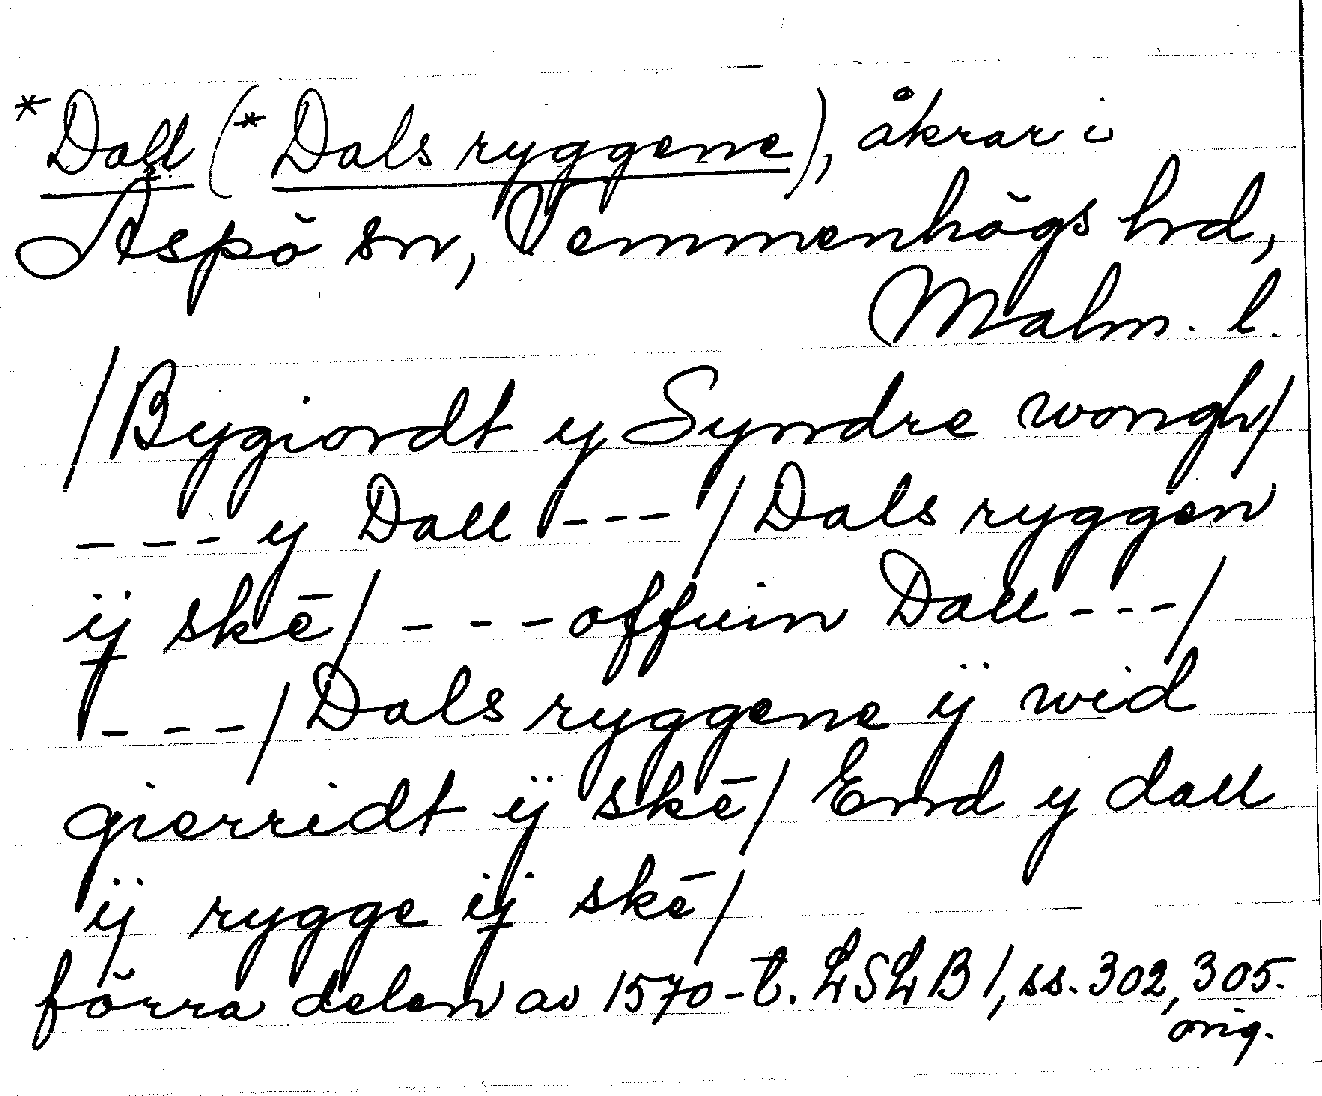 *Dall (*Dals ryggene), åkrar i
Äspö sn, Vemmenhögs hrd,
Malm. l.
/Bygiordt y Syndre wongh/
--- y Dall --- /Dals ryggen
ij skē/ --- offuin Dall ---/
--- /Dals ryggene ij wid
gierridt ij skē/ End y dall
ij rygge ij skē/
förra delen av 1570-t. LSLB 1, ss. 302, 305.
orig.